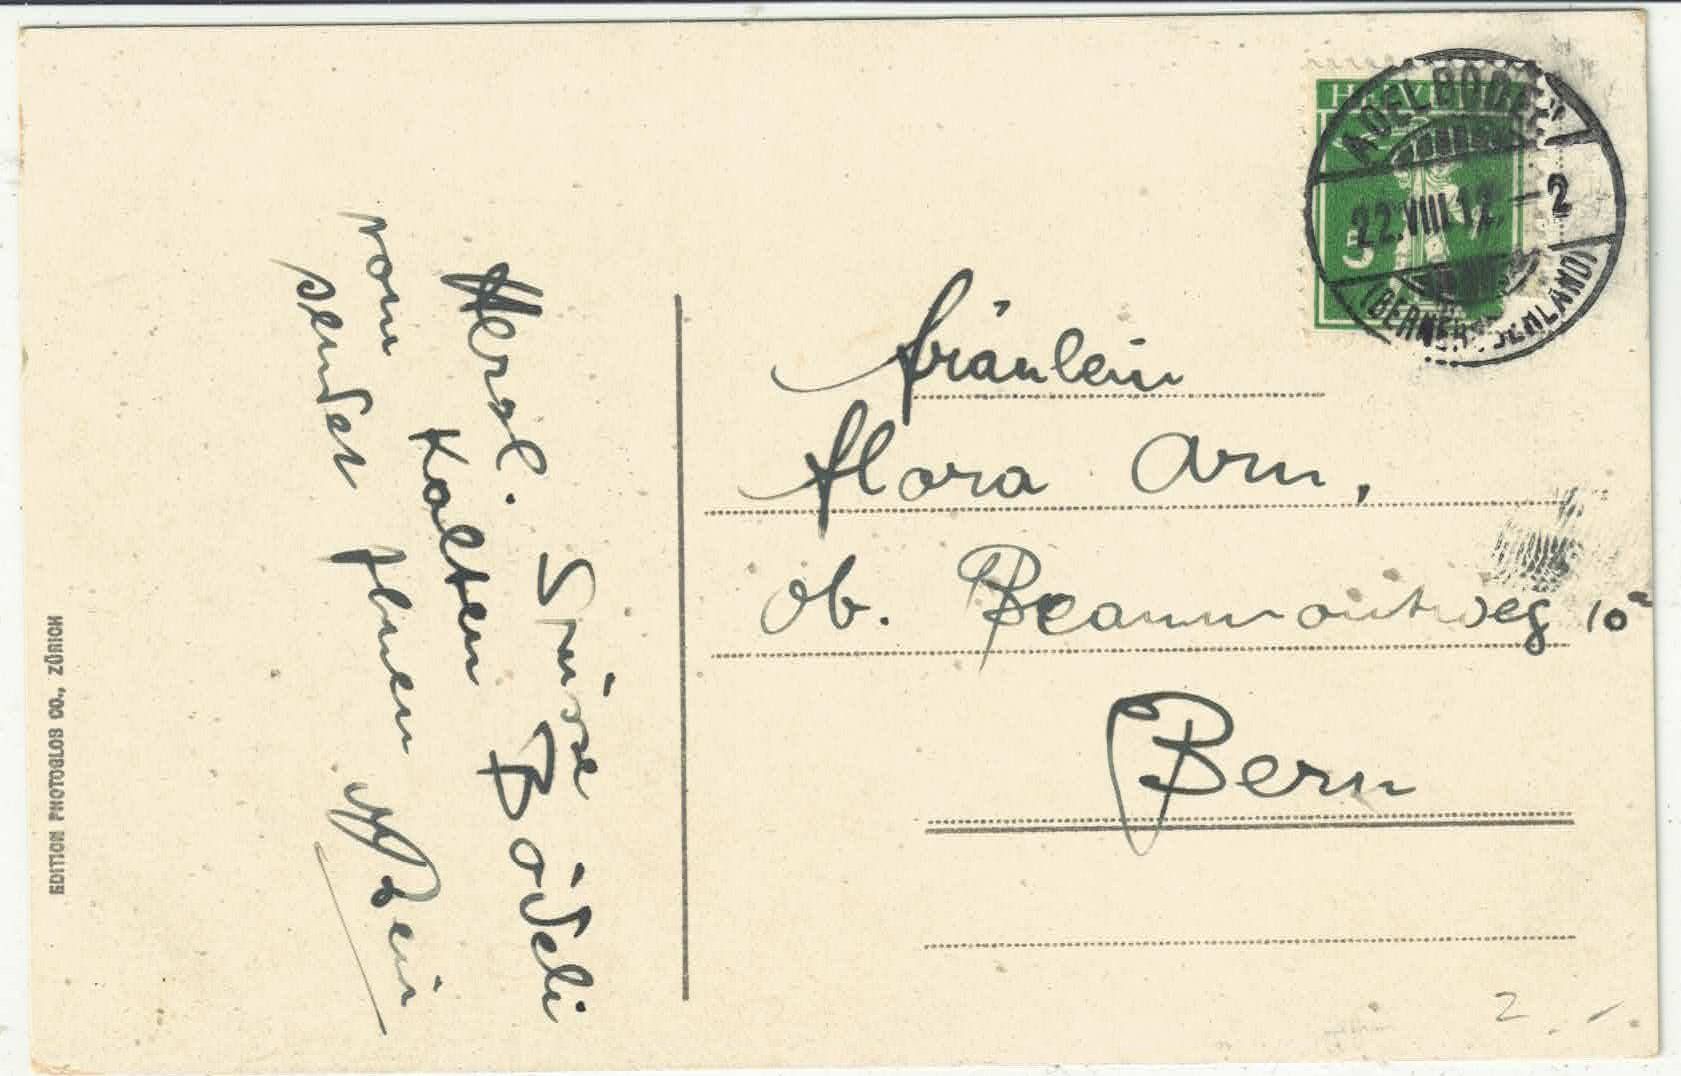 Herzl. Grüsse
vom Kalten Bödeli
sendet Ihnen
EDITION PHOTOGLOB CO., ZÜRICH
HELVETIA
5
ADELBODEN
22.VIII.12.–2
(BERNER OBERLAND)
Fräulein
Flora Arn,
ob. Beaumontweg 10a
Bern
2.-